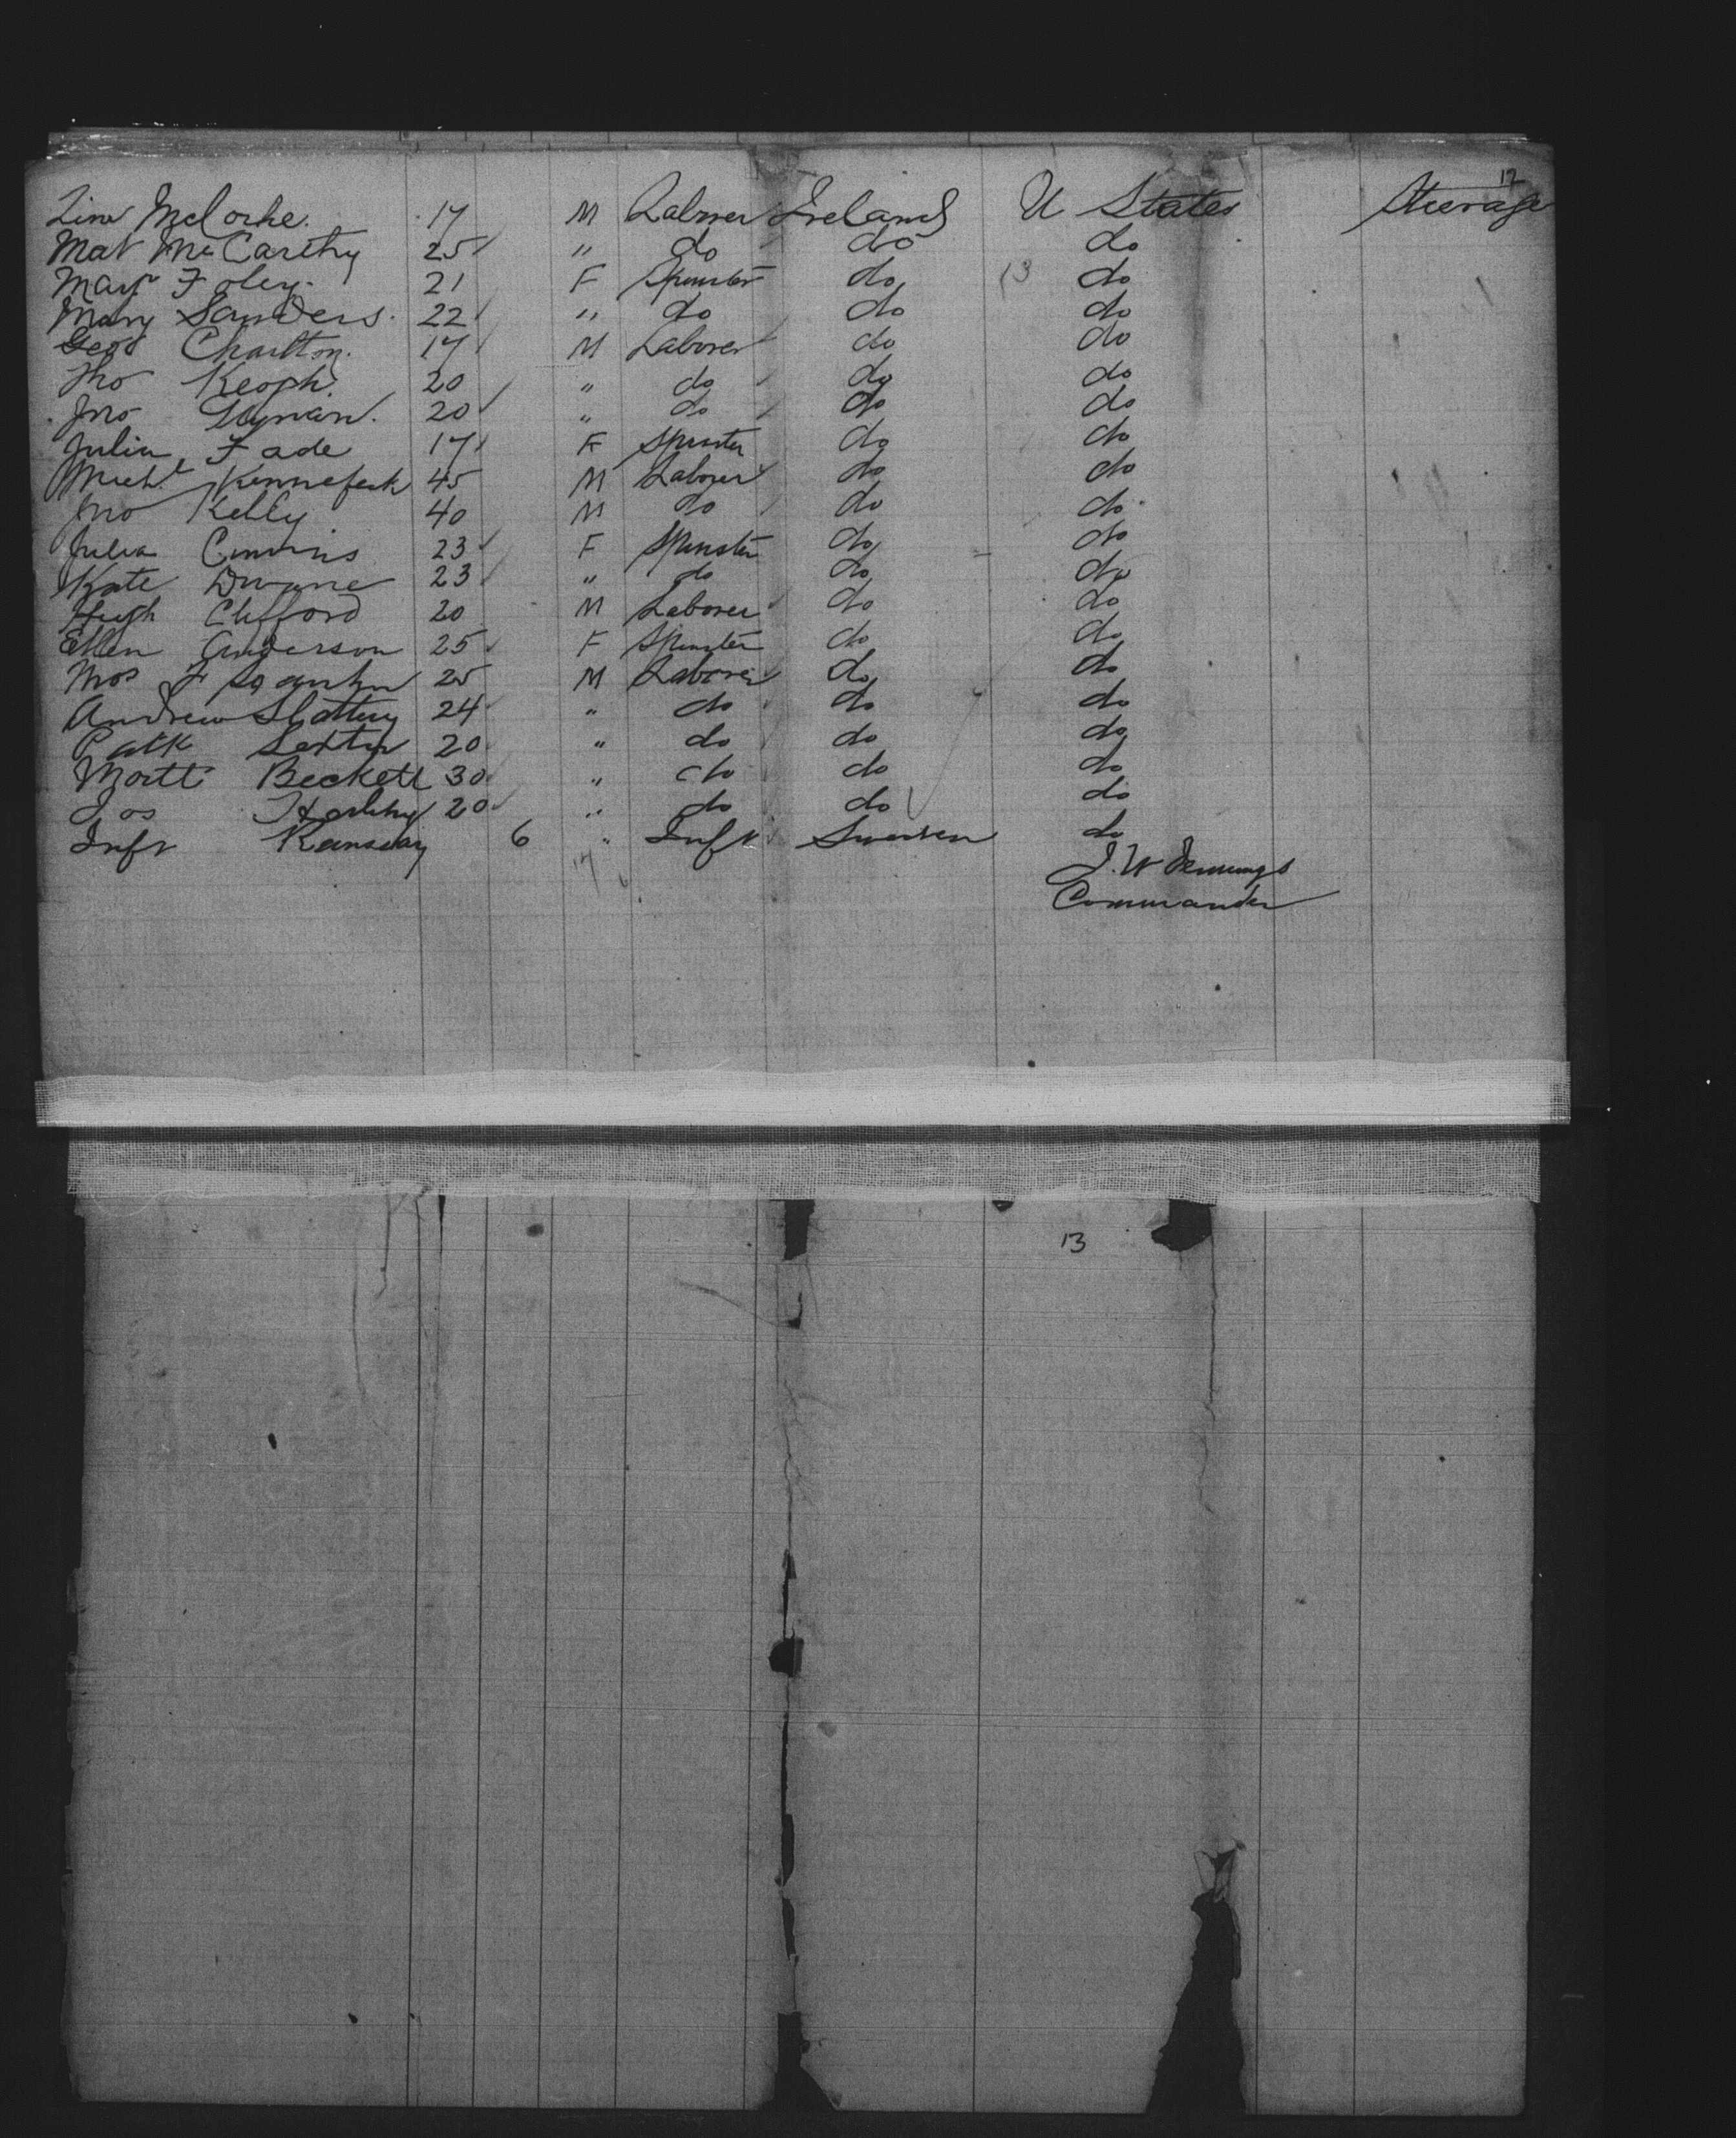 12
Tim McCorke. 17 M Laborer Ireland U States Steerage
Mat McCarthy 25 " do do do
Mary Foley. 21 F Spinster do 13 do
Mary Sanders. 22 " do do do
Geo Charlton. 17 M Laborer do do
Jno Keoph. 20 " do do do
Jno 20 " do do do
Julia Fade 17 F Spinster do do
Michl Kennefeck 45 M Laborer do do
Jno Kelly 40 M do do do
Julia Cummins 23 F Spinster do do
Kate Dwane 23 " do do do
Hugh Clifford 20 M Laborer do do
Ellen Anderson 25 F Spinster do do
25 M Laborer do do
Andrew Slattery 24 " do do do
Patk Sexton 20 " do do do
Beckett 30 " do do do
Jos 20 " do do do
Inft Ramsay 6 " Inft Sweden do
J. W Jennings
Commander
13